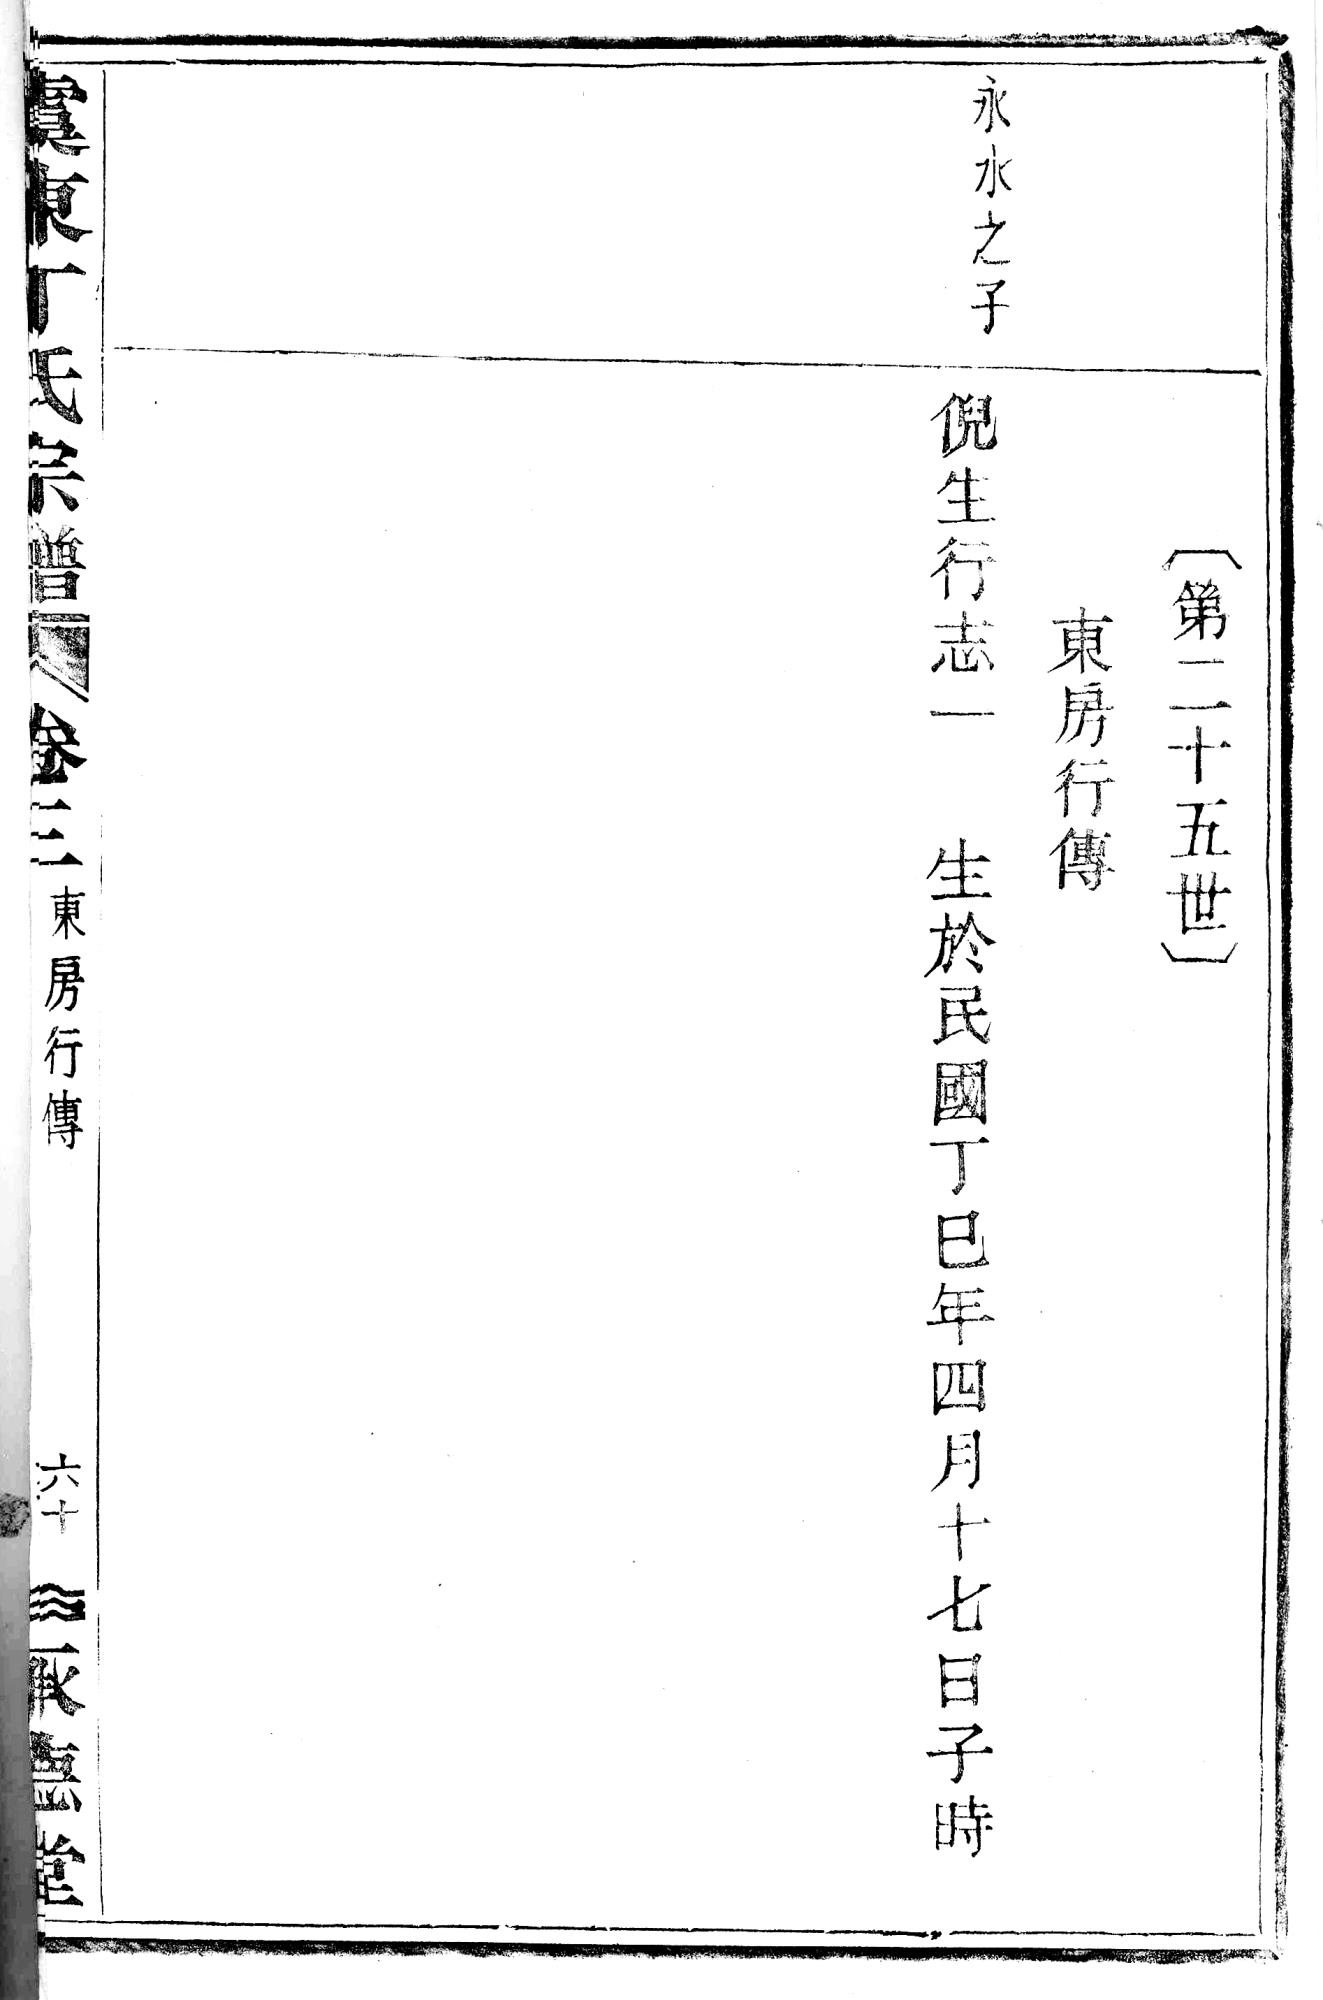 〔第二十五世〕
東房行傳
永水之子
倪生行志一　生於民國丁巳年四月十七日子時
虞東丁氏宗譜　卷三　東房行傳　六十　承德堂